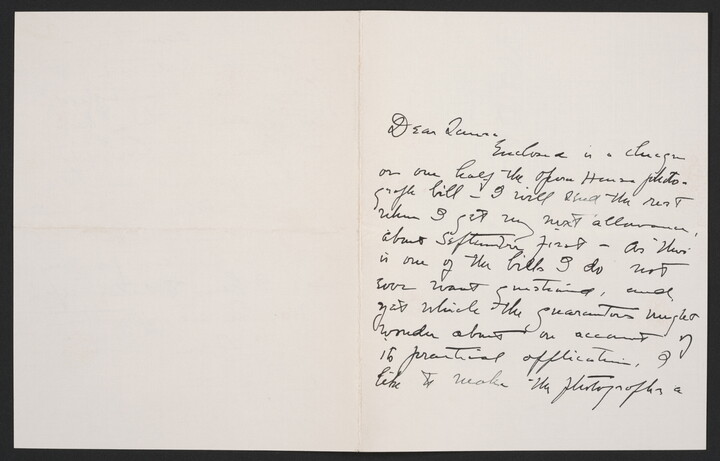 Dear Laura
Enclosed is a cheque
on one half the Opera House photo-
graph bill - I will send the rest
when I get my next allowance,
about September first - As this
is one of the bills I do not
ever want questioned, and
yet which the guarantors might
wonder about on account of
its practical application, I
like to make the photographs a